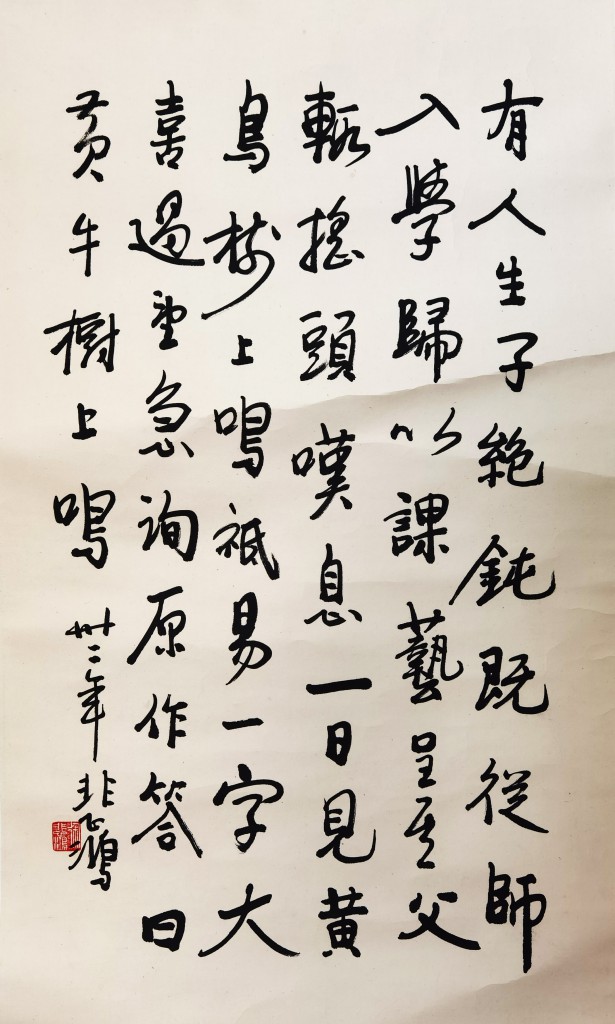 有人生子絶鈍既從師
入學歸以課藝呈其父
輒搖頭嘆息一日見黃
鳥樹上鳴祇易一字大
喜過望急詢原作答曰
黃牛樹上鳴
卅二年悲鴻